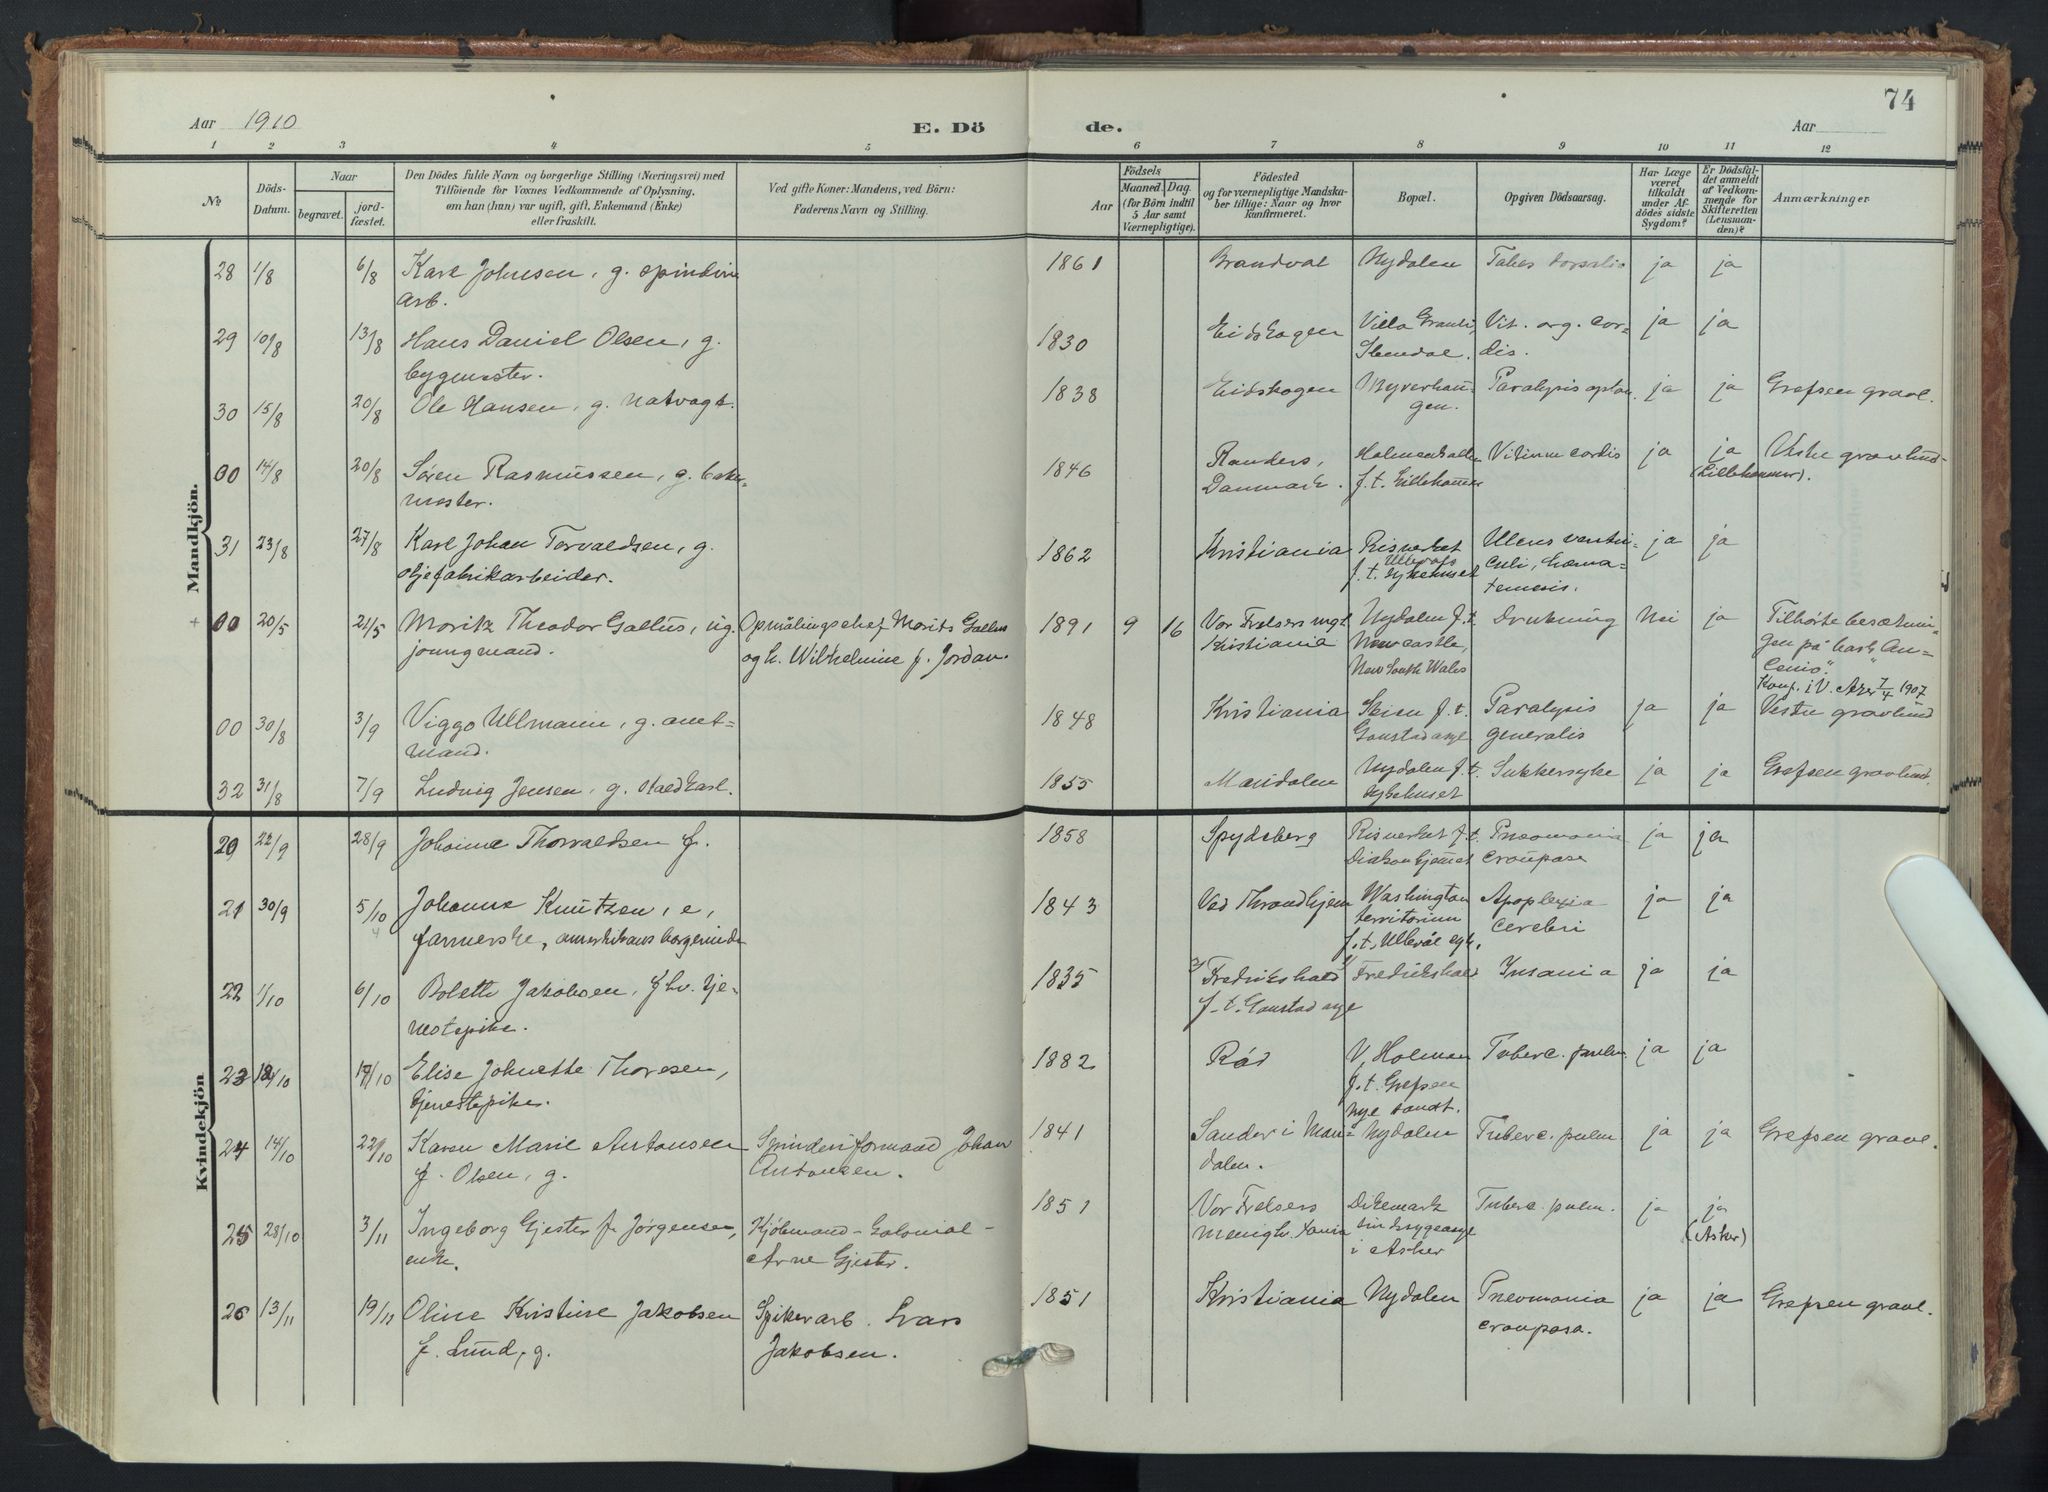 74
Aar 1910
E. Dö
de.
Aar
1 2 3 4 5 6 7 8 9 10 11 12
№
Döds-Datum.
Naar
begravet.
jord-fæstet.
Den Dödes fulde Navn og borgerlige Stilling (Næringsvei) med
Tilföiende for Voxnes Vedkommende af Oplysning,
om han (hun) var ugift, gift, Enkemand (Enke)
eller fraskilt.
Ved gifte Koner: Mandens, ved Börn:
Faderens Navn og Stilling.
Aar
Födsels
Maaned. Dag.
(for Börn indtil
5 Aar samt
Værnepligtige).
Födested
og for værnepligtige Mandska-
ber tillige: Naar og hvor
konfirmeret.
Bopæl.
Opgiven Dödsaarsag.
Har Læge
været
tilkaldt
under Af-
dödes sidste
Sygdom?
Er Dödsfal-
det anmeldt
af Vedkom-
mende for
Skifteretten
(Lensman-
den)?
Anmærkninger
Mandkjön.
28 1/8 6/8 Karl Johnsen, g. spinderi 1861 Brandval Nydalen Tabes dorsalis ja ja
arb.
29 10/8 13/8 Hans Daniel Olsen, g. 1830 Eidskogen Villa Vit. org. cor- ja ja
bygmester. dis.
30 15/8 20/8 Ole Hansen, g. natvagt. 1838 Eidskogen Myrerhau- Paralysis ja ja Grefsen gravl.
gen.
00 14/8 20/8 Søren Rasmussen, g. baker- 1846 Randers, Holmenkollen Vitium cordis ja ja Vestre gravlund
mester. Danmark. f. t. Lillehammer (Lillehammer).
31 23/8 27/8 Karl Johan Torvaldsen, g. 1862 Kristiania Risverket Ulcus ventri- ja ja
oljefabrikarbeider. f. t. Ullevål sykehuset culi, hæma-
temesis.
+ 00 20/5 21/5 Moritz Theodor Gallus, ug. Opmålingschef Morits Gallus 1891 9 16 Vor Frelsers mgt Nydalen f. t. Drukning Nei ja Tilhørte besætnin-
joungmand. og h. Wilhelmine f. Jordan. Kristiania Newcastle, gen på bark "An-
New South Wales cenis".
Konf. i V. Aker 7/4 1907
00 30/8 3/9 Viggo Ullmann, g. amt- 1848 Kristiania Skien f. t. Paralysis ja ja Vestre gravlund
mand. Gaustad asyl generalis
32 31/8 7/9 Ludvig Jensen, g. staldkarl. 1855 Maridalen Nydalen f. t. Sukkersyke ja ja Grefsen gravlund.
sykehuset
Kvindekjön
20 22/9 28/9 Johanne Thorvaldsen f. 1858 Spydeberg Risverket f. t. Pneomonia ja ja
Diakonhjemmet crouposa
21 30/9 5/10 Johanne Knutzen, e, 1843 Ved Throndhjem Washington Apoplexia ja ja
farmerske, amerikansk borgerinde territorium cerebri
f. t. Ullevål syk.
22 1/10 6/10 Bolette Jakobsen, fhv. tje- 1835 Fredrikshald Fredrikshald Insania ja ja
nestepike. f. t. Gaustad asyl
23 12/10 17/10 Elise Johnette Thoresen, 1882 Råd V. Holmen Tuberc. pulm. ja ja
tjenestepike. f. t. Grefsen
nye sanat.
24 14/10 22/10 Karen Marie Antonsen Spinderiformand Johan 1841 Sander i Mari- Nydalen Tuberc. pulm ja ja Grefsen gravl.
f. Olsen, g. Antonsen. dalen.
25 28/10 3/11 Ingeborg Gjester f. Jørgensen, Kjøbmand-Colonial- 1851 Vor Frelsers Dikemark Tuberc. pulm. ja ja
enke. Arne Gjester. menigh. Kania sindssygeasyl (Asker)
i Asker
26 13/11 19/11 Oline Kristine Jakobsen Spikerarb. Lars 1851 Kristiania Nydalen Pneomonia ja ja Grefsen gravl.
f. Lund, g. Jakobsen. crouposa.